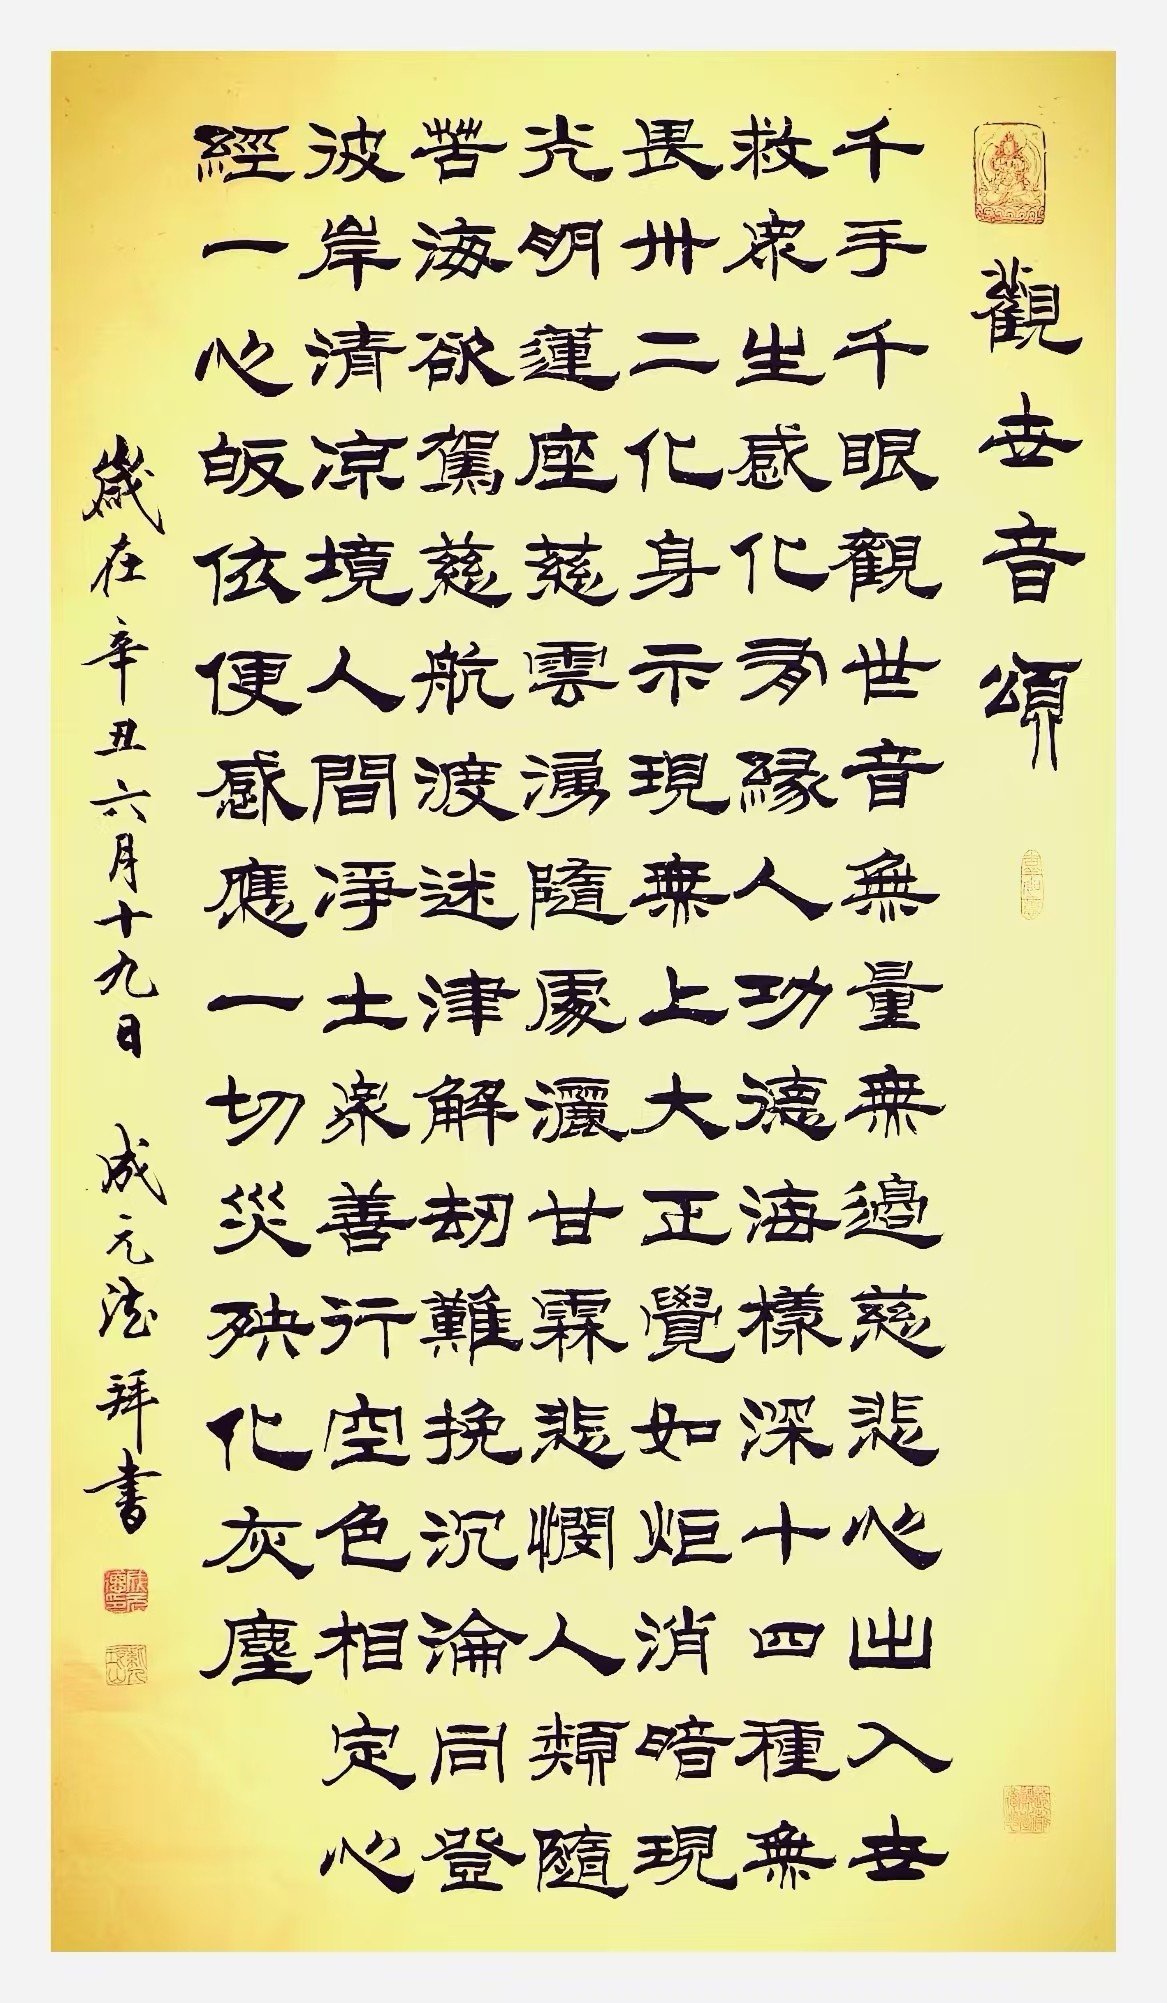 觀世音頌
千手千眼觀世音無量無邊慈悲心出入世
救衆生感化有緣人功德海樣深十四種無
畏卅二化身示現無上大正覺如炬消暗現
光明蓮座慈雲湧隨處灑甘霖悲憫人類隨
苦海欲駕慈航渡迷津解劫難挽沉淪同登
彼岸清涼境人間淨土衆善行空色相定心
經一心皈依便感應一切災殃化灰塵
歲在辛丑六月十九日 成元法拜書